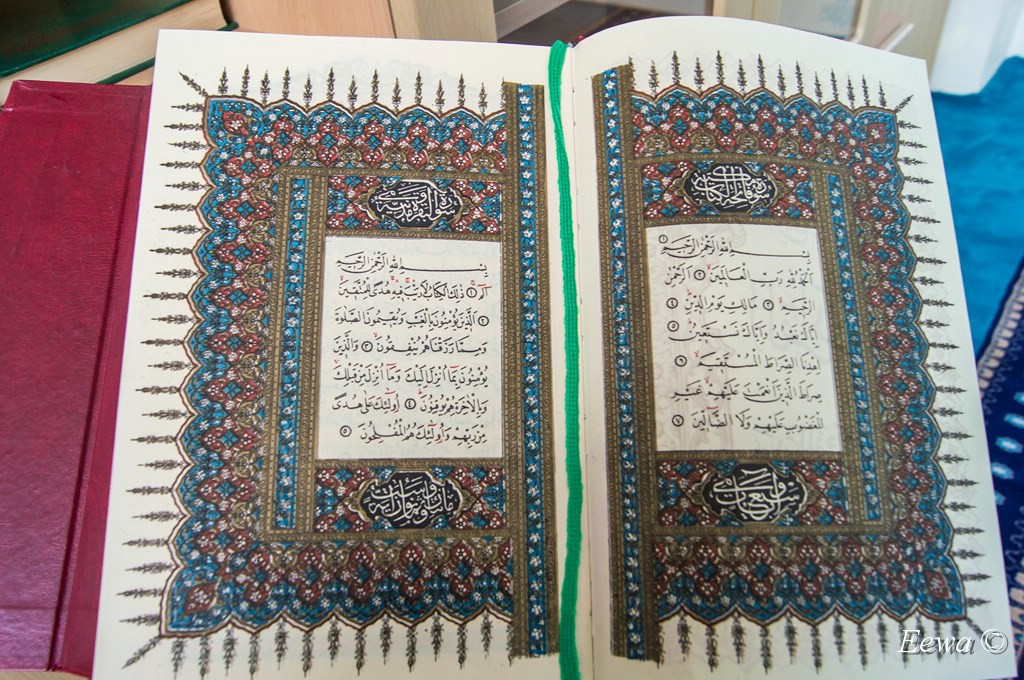 سورة فاتحة الكتاب
بسم الله الرحمن الرحيم ١
الحمد لله رب العالمين ٢ الرحمن
الرحيم ٣ مالك يوم الدين ٤
اياك نعبد واياك نستعين ٥
اهدنا الصراط المستقيم ٦
صراط الذين انعمت عليهم غير
المغضوب عليهم ولا الضالين ٧
وهي سبع آيات
سورة البقرة مدنية وهي
بسم الله الرحمن الرحيم
الم ١ ذلك الكتاب لا ريب فيه هدى للمتقين
٢ الذين يؤمنون بالغيب ويقيمون الصلوة
ومما رزقناهم ينفقون ٣ والذين
يؤمنون بما انزل اليك وما انزل من قبلك
وبالاخرة هم يوقنون ٤ اولئك على هدى
من ربهم واولئك هم المفلحون ٥
مائتان وست وثمانون آية
Eewa ©